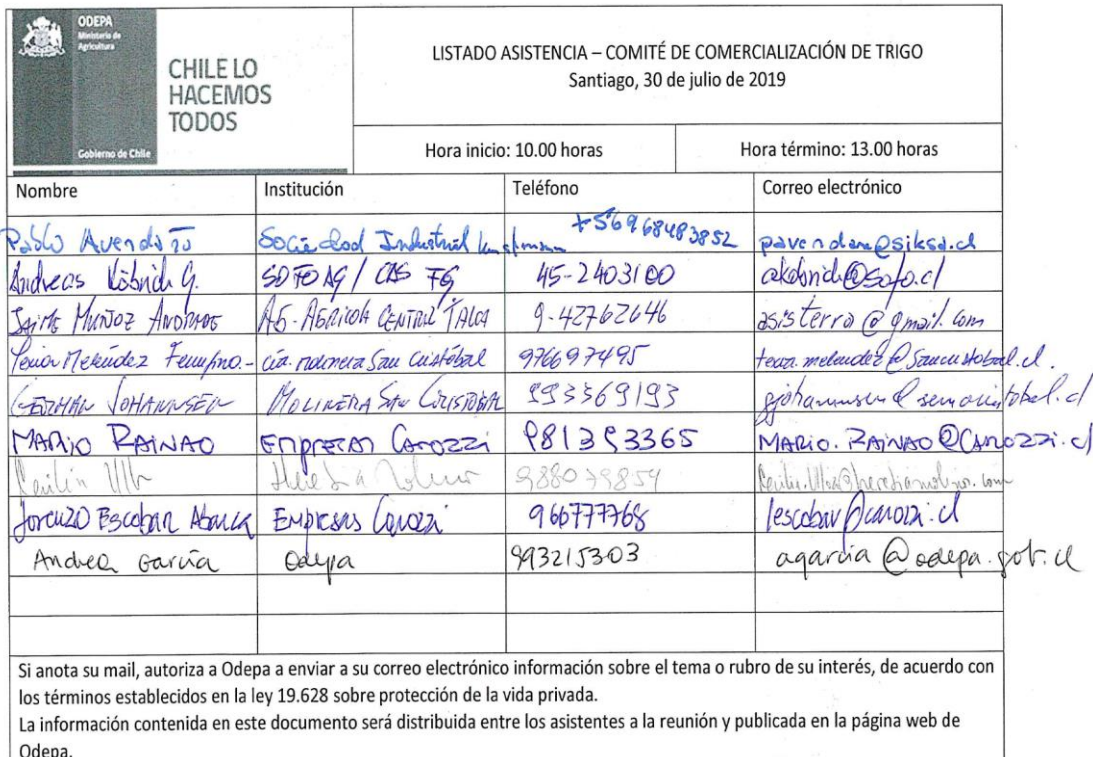 ODEPA
Ministerio de
Agricultura
CHILE LO
HACEMOS
TODOS
Gobierno de Chile
LISTADO ASISTENCIA – COMITÉ DE COMERCIALIZACIÓN DE TRIGO
Santiago, 30 de julio de 2019
Hora inicio: 10.00 horas Hora término: 13.00 horas
Nombre Institución Teléfono Correo electrónico
Pablo Avendaño Sociedad Industrial +56968483852 pavendano@siksa.cl
Andreas Köbrich G. SOFO AG / 45-2403100 akobrich@sofo.cl
JAIME MUÑOZ ANDRADE AG-AGRICOLA CENTRAL TALCA 9-42762646 asisterra@gmail.com
Meléndez cia. molinera San Cristóbal 976697495
GERMAN JOHANNSEN MOLINERA SAN CRISTOBAL 993369193
MARIO RAINAO EMPRESAS CAROZZI 981393365 MARIO.RAINAO@CAROZZI.cl
988039854
Lorenzo Escobar Abarca Empresas Carozzi 966777768 lescobar@carozzi.cl
Andrea García Odepa 993215303 agarcia@odepa.gob.cl
Si anota su mail, autoriza a Odepa a enviar a su correo electrónico información sobre el tema o rubro de su interés, de acuerdo con
los términos establecidos en la ley 19.628 sobre protección de la vida privada.
La información contenida en este documento será distribuida entre los asistentes a la reunión y publicada en la página web de
Odepa.